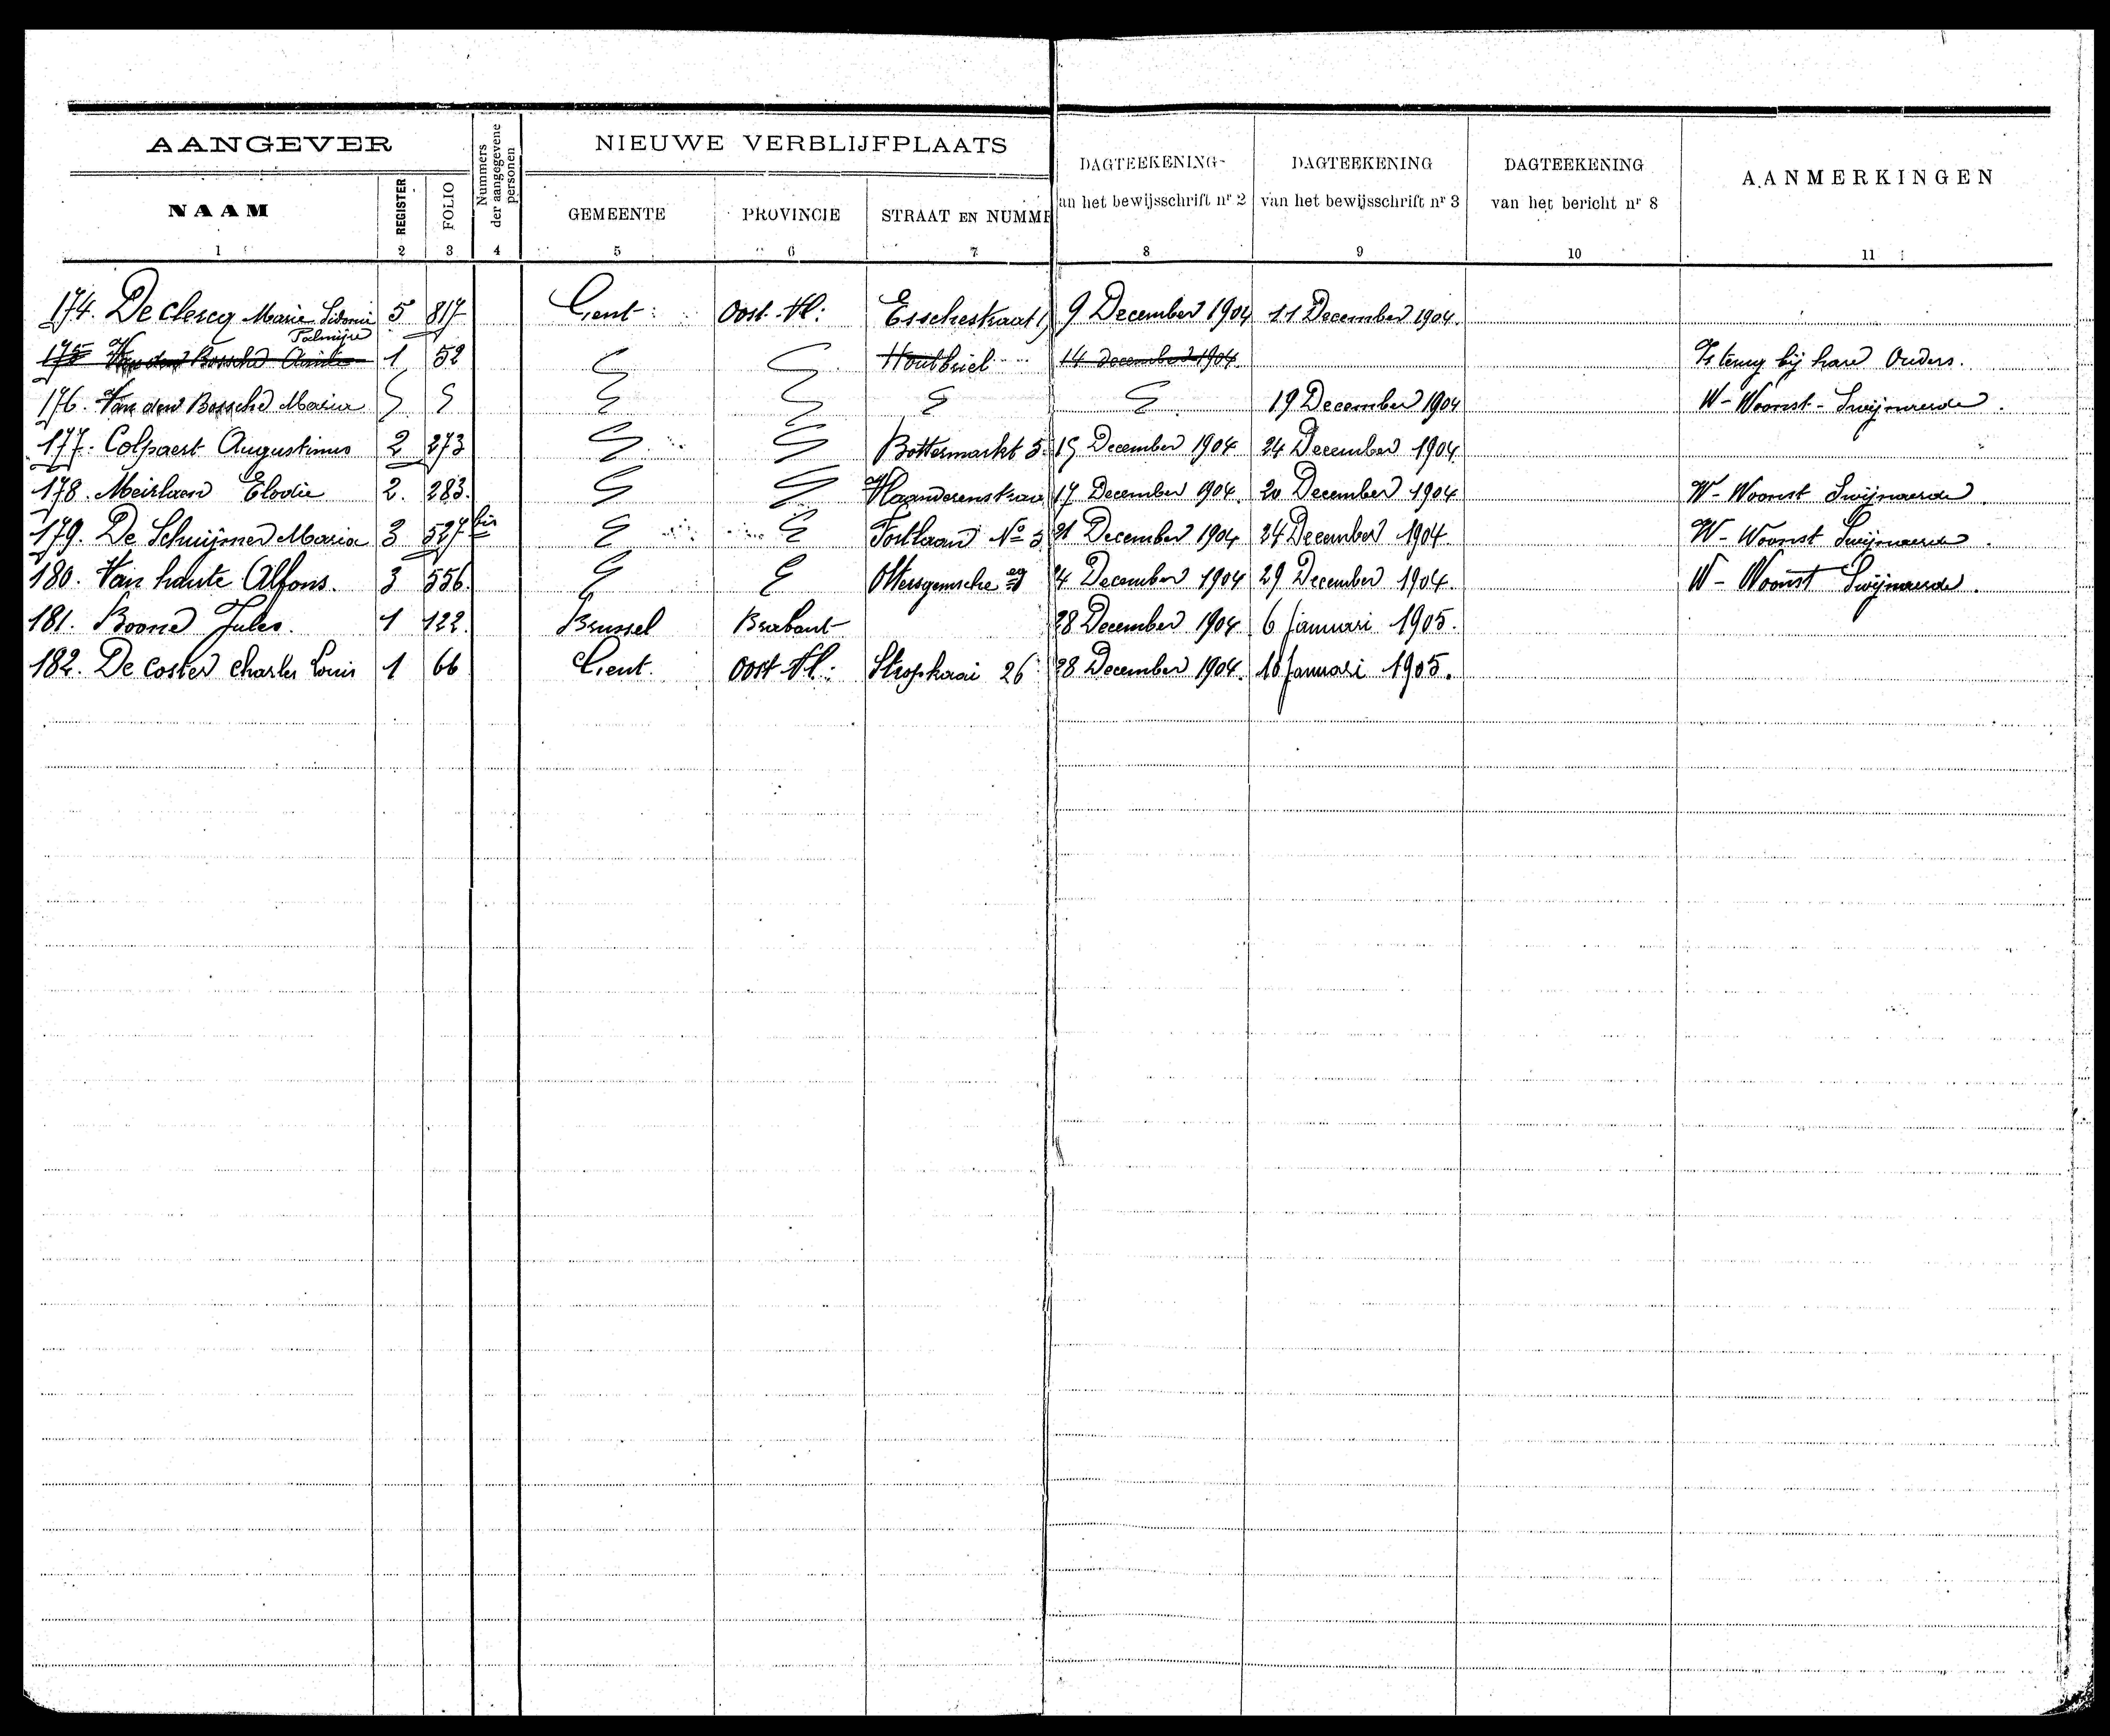 AANGEVER
NIEUWE VERBLIJFPLAATS
NAAM
REGISTER
FOLIO
Nummers der aangegevene personen
GEMEENTE
PROVINCIE
STRAAT EN NUMME
DAGTEEKENING an het bewijsschrift nr 2
DAGTEEKENING van het bewijsschrift nr 3
DAGTEEKENING van het bericht nr 8
AANMERKINGEN
1 2 3 4 5 6 7 8 9 10 11
174. De clercq Marie Sidonie Palmijre 5 817 Gent Oost-Vl: Esschestraat 9 December 1904 11 December 1904.
175 Van den Bossche 1 52 Houtbriel 14 December 1904. Is terug bij hare Ouders.
176. Van den Bossche Maria 19 December 1904 W-Woonst-Swijnaerde.
177. Colpaert Augustinus 2 273 Bottermarkt 15 December 1904 24 December 1904.
178. Meirlaen Elodie 2. 283. Vlaanderenstraa 17 December 1904. 20 December 1904 W-Woonst Swijnaerde.
179. De Schuijmer Maria 3 527 bis Fortlaan No 21 December 1904 24 December 1904. W-Woonst Swijnaerde.
180. Van haute Alfons. 3 556. Ottergemsche eg 4 December 1904 29 December 1904. W-Woonst Swijnaerde.
181. Boone Jules. 1 122. Brussel Brabant 28 December 1904. 6 Januari 1905.
182. De Coster Charles Louis 1 66 Gent. Oost-Vl: Stropkaai 26 28 December 1904. 10 Januari 1905.